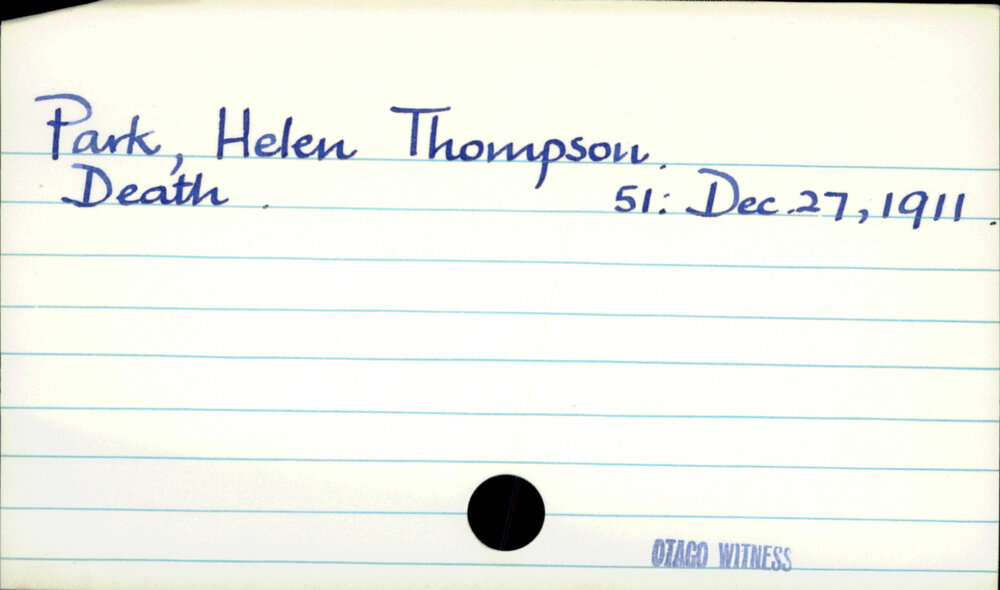 Park, Helen Thompson.
Death. 51: Dec. 27, 1911.
OTAGO WITNESS